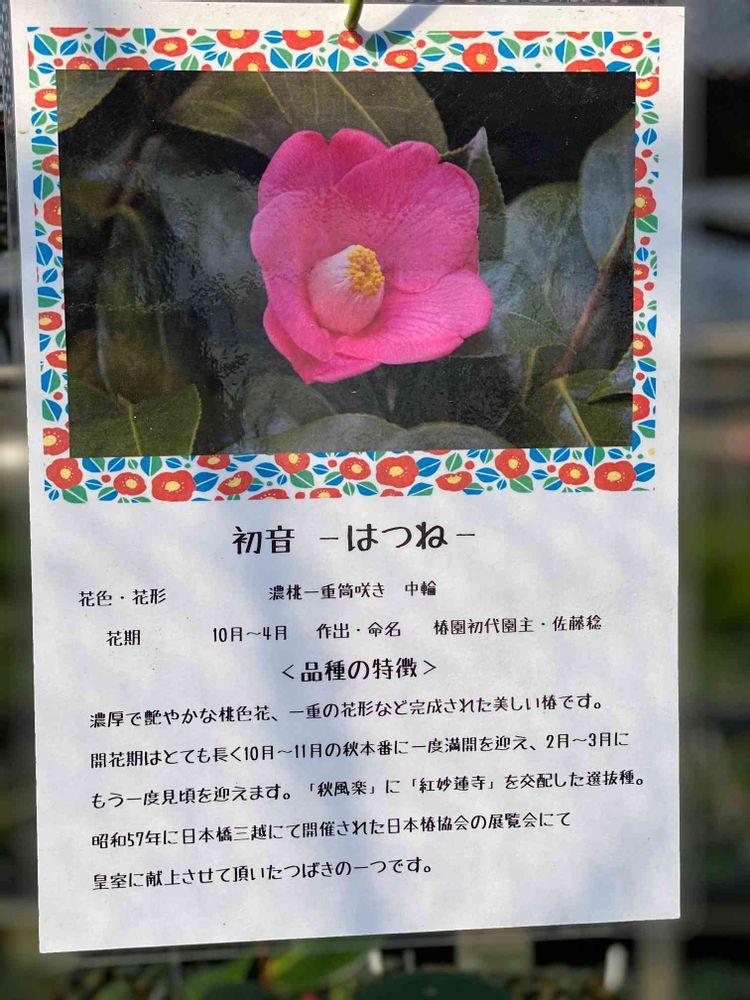 初音 －はつね－
花色・花形 濃桃一重筒咲き 中輪
花期 10月～4月 作出・命名 椿園初代園主・佐藤稔
＜品種の特徴＞
濃厚で艶やかな桃色花、一重の花形など完成された美しい椿です。
開花期はとても長く10月～11月の秋本番に一度満開を迎え、2月～3月に
もう一度見頃を迎えます。「秋風楽」に「紅妙蓮寺」を交配した選抜種。
昭和57年に日本橋三越にて開催された日本椿協会の展覧会にて
皇室に献上させて頂いたつばきの一つです。